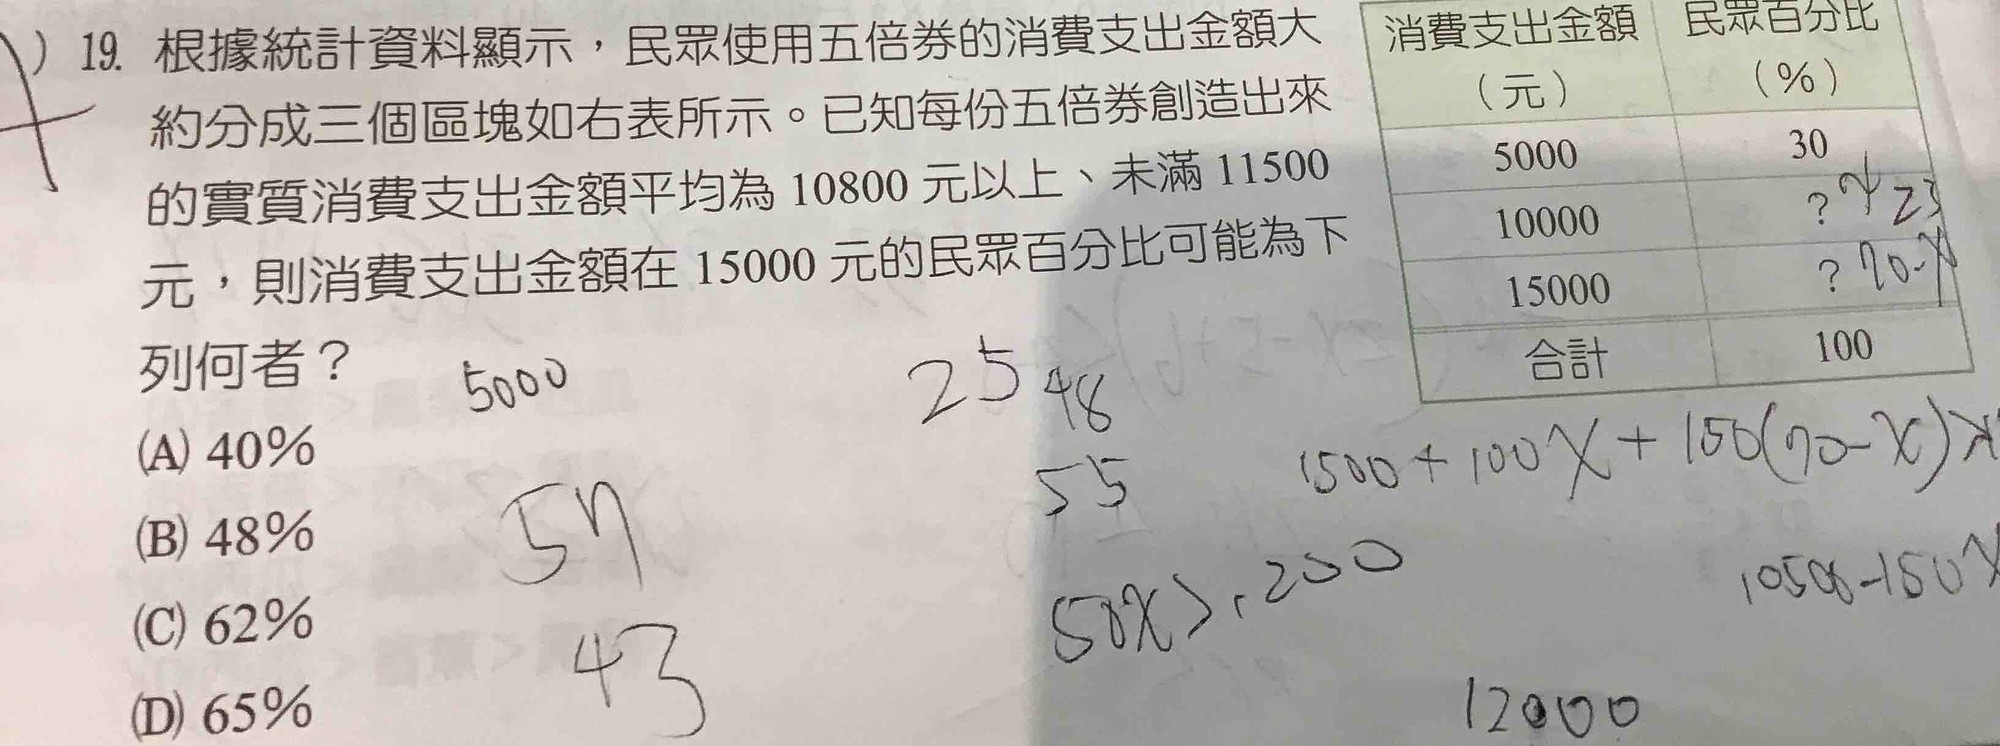 ) 19. 根據統計資料顯示，民眾使用五倍券的消費支出金額大
約分成三個區塊如右表所示。已知每份五倍券創造出來
的實質消費支出金額平均為 10800 元以上、未滿 11500
元，則消費支出金額在 15000 元的民眾百分比可能為下
列何者？
(A) 40%
(B) 48%
(C) 62%
(D) 65%
消費支出金額（元） 民眾百分比（%）
5000 30
10000 ? 23
15000 ? 70-x
合計 100
5000
25
48
55
57
43
1500+100x+150(70-x)
50x>
200
12000